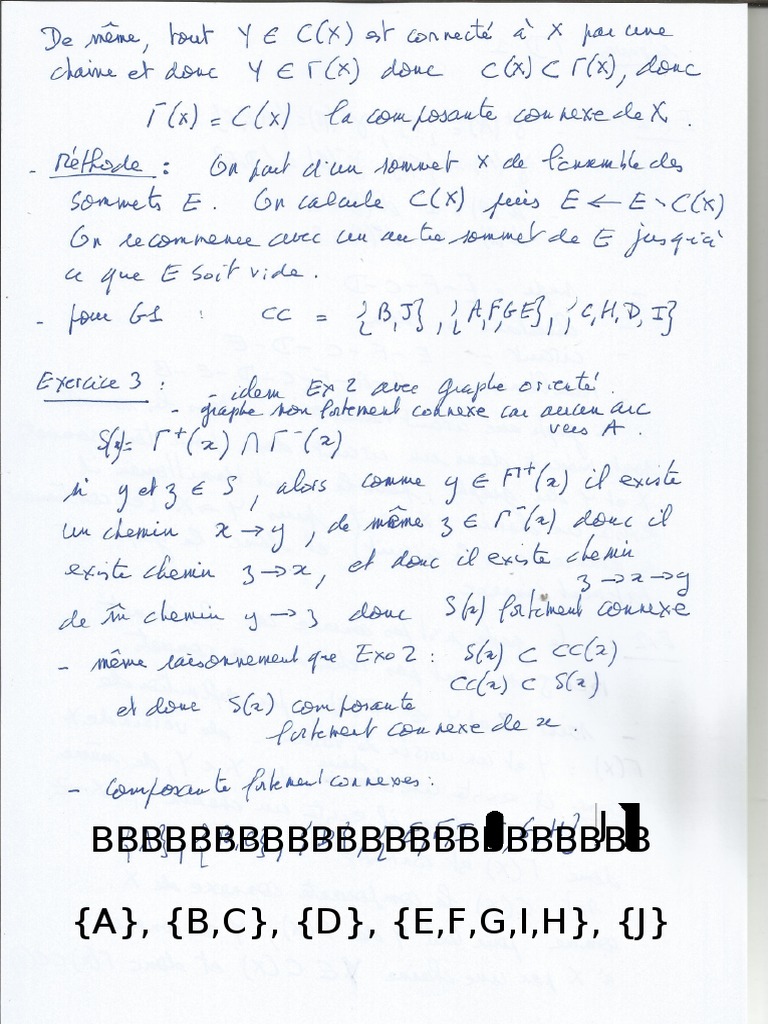 De même, tout Y ∈ C(X) est connecté à X par une
chaine et donc Y ∈ Γ(X) donc C(X) ⊂ Γ(X), donc
Γ(X) = C(X) la composante connexe de X.
- Méthode : On part d'un sommet X de l'ensemble des
sommets E. On calcule C(X) puis E ← E \ C(X)
On recommence avec un autre sommet de E jusqu'à
ce que E soit vide.
- pour G1 : CC = {B,J}, {A,F,G,E}, {C,H,D,I}
Exercice 3 : - idem Ex 2 avec graphe orienté.
- graphe non fortement connexe car aucun arc
vers A.
S(x) = Γ⁺(x) ∩ Γ⁻(x)
si y et z ∈ S, alors comme y ∈ Γ⁺(x) il existe
un chemin x → y, de même z ∈ Γ⁻(x) donc il
existe chemin z → x, et donc il existe chemin
z → x → y
de m̄ chemin y → z donc S(x) fortement connexe
- même raisonnement que Exo 2 : S(x) ⊂ CC(x)
CC(x) ⊂ S(x)
et donc S(x) composante
fortement connexe de x.
- composante fortement connexes :
BBBBBBBBBBBBBBBB BBBBBB
{A}, {B,C}, {D}, {E,F,G,I,H}, {J}